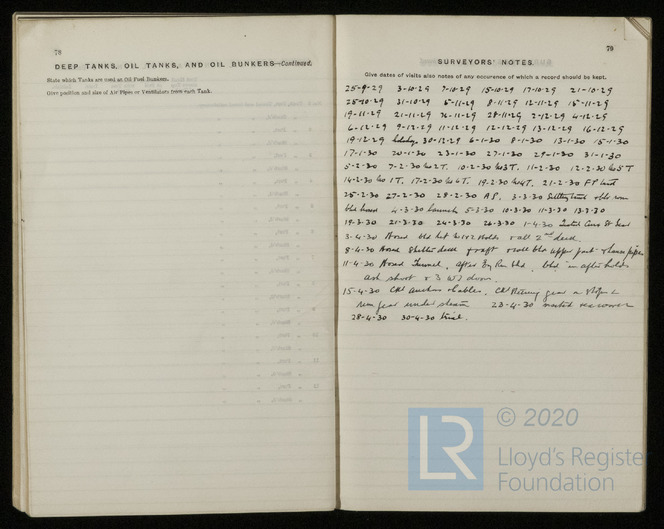 78
DEEP TANKS, OIL TANKS, AND OIL BUNKERS—Continued.
State which Tanks are used as Oil Fuel Bunkers.
Give position and size of Air Pipes or Ventilators from each Tank.
79
SURVEYORS' NOTES
Give dates of visits also notes of any occurence of which a record should be kept.
25-9-29 3-10-29 7-10-29 15-10-29 17-10-29 21-10-29
25-10-29 31-10-29 5-11-29 8-11-29 12-11-29 15-11-29
19-11-29 21-11-29 26-11-29 28-11-29 2-12-29 4-12-29
6-12-29 9-12-29 11-12-29 12-12-29 13-12-29 16-12-29
19-12-29 holidays 30-12-29 6-1-30 8-1-30 13-1-30 15-1-30
17-1-30 20-1-30 23-1-30 27-1-30 29-1-30 31-1-30
5-2-30 7-2-30 No 2 T. 10-2-30 No 3 T. 11-2-30 12-2-30 No 5 T
14-2-30 No 1 T. 17-2-30 No 6 T. 19-2-30 No 4 T. 21-2-30 F P
25-2-30 27-2-30 28-2-30 A P. 3-3-30 Settling tanks
hosed 4-3-30 launch 5-3-30 10-3-30 11-3-30 13-3-30
19-3-30 21-3-30 24-3-30 26-3-30 1-4-30
3-4-30 Hosed holds & all 2nd deck.
8-4-30 Hosed Shelter deck upper part
11-4-30 Hosed Tunnel, after in after holds
ash shoot & 3 W T doors.
15-4-30 anchors & cables. gear
gear under steam 23-4-30
28-4-30 30-4-30 trial.
LR
© 2020
Lloyd's Register
Foundation